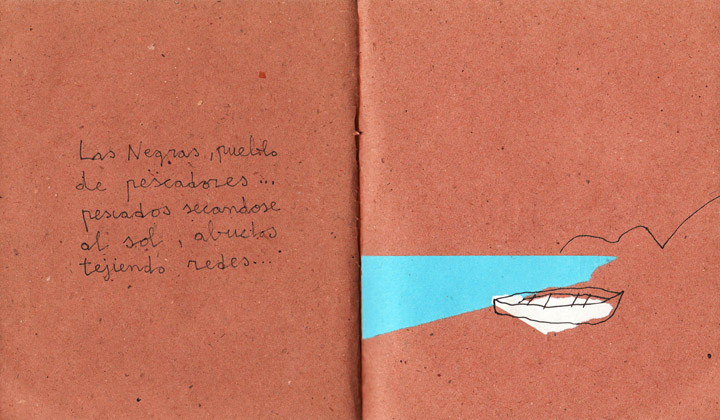 Las Negras, pueblo
de pescadores...
pescados secandose
al sol, abuelas
tejiendo redes...